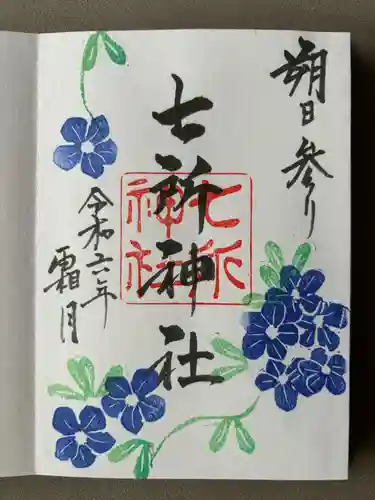 朔日参り
七所神社
七所
神社
令和六年
霜月